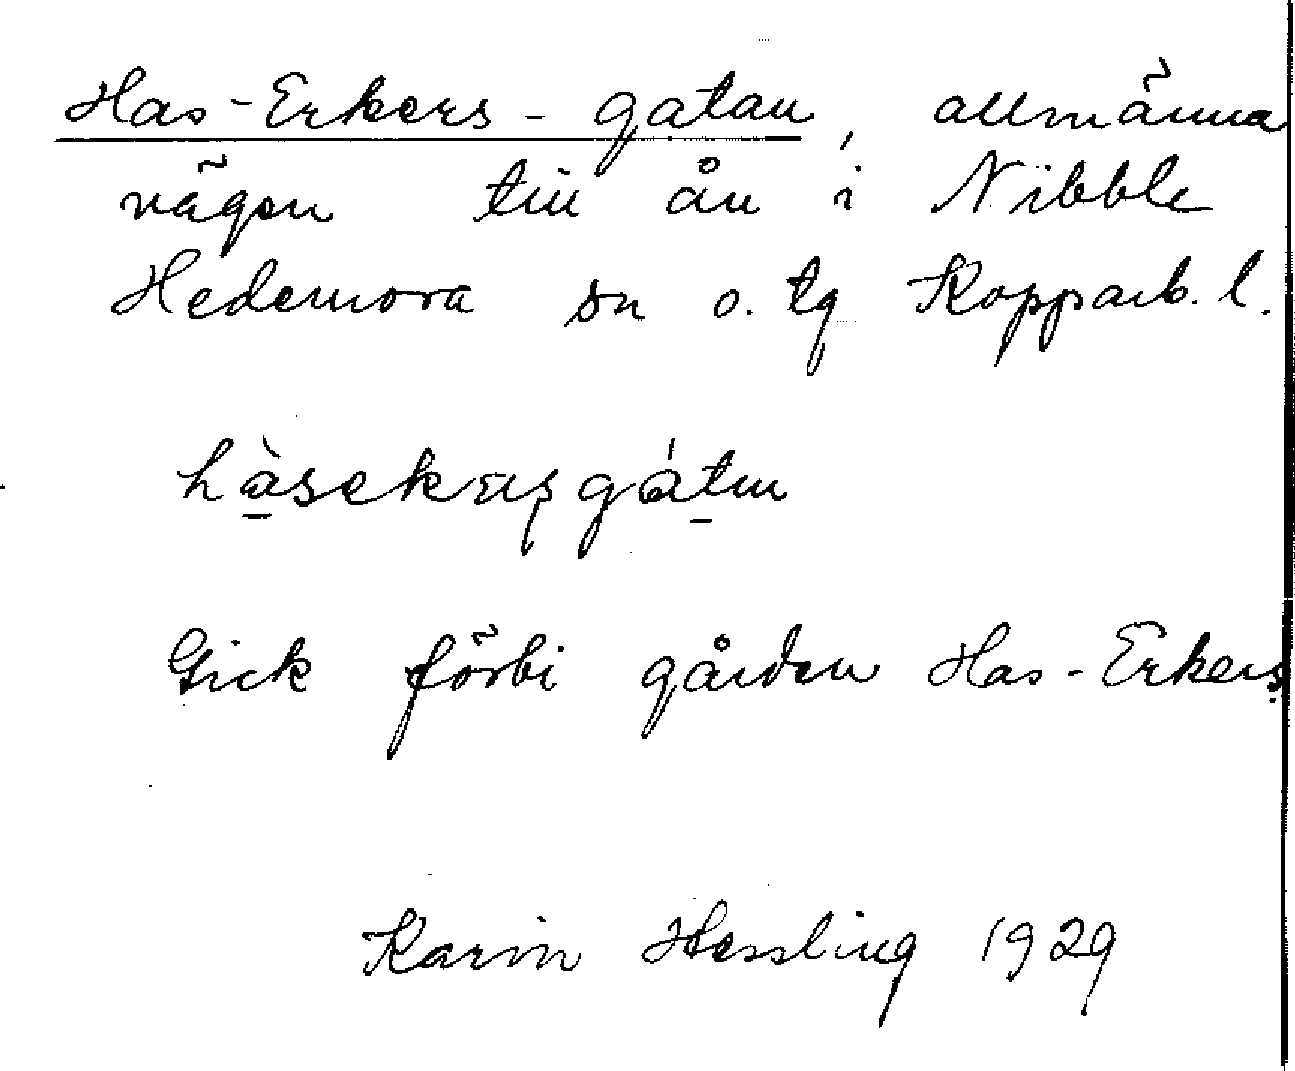 Has-Erkers-gatan, allmänna
vägen till ån i Nibble
Hedemora sn o. tg Kopparb. l.
hàsekæʂgátṇ
Gick förbi gården Has-Erkers
Karin Hessling 1929